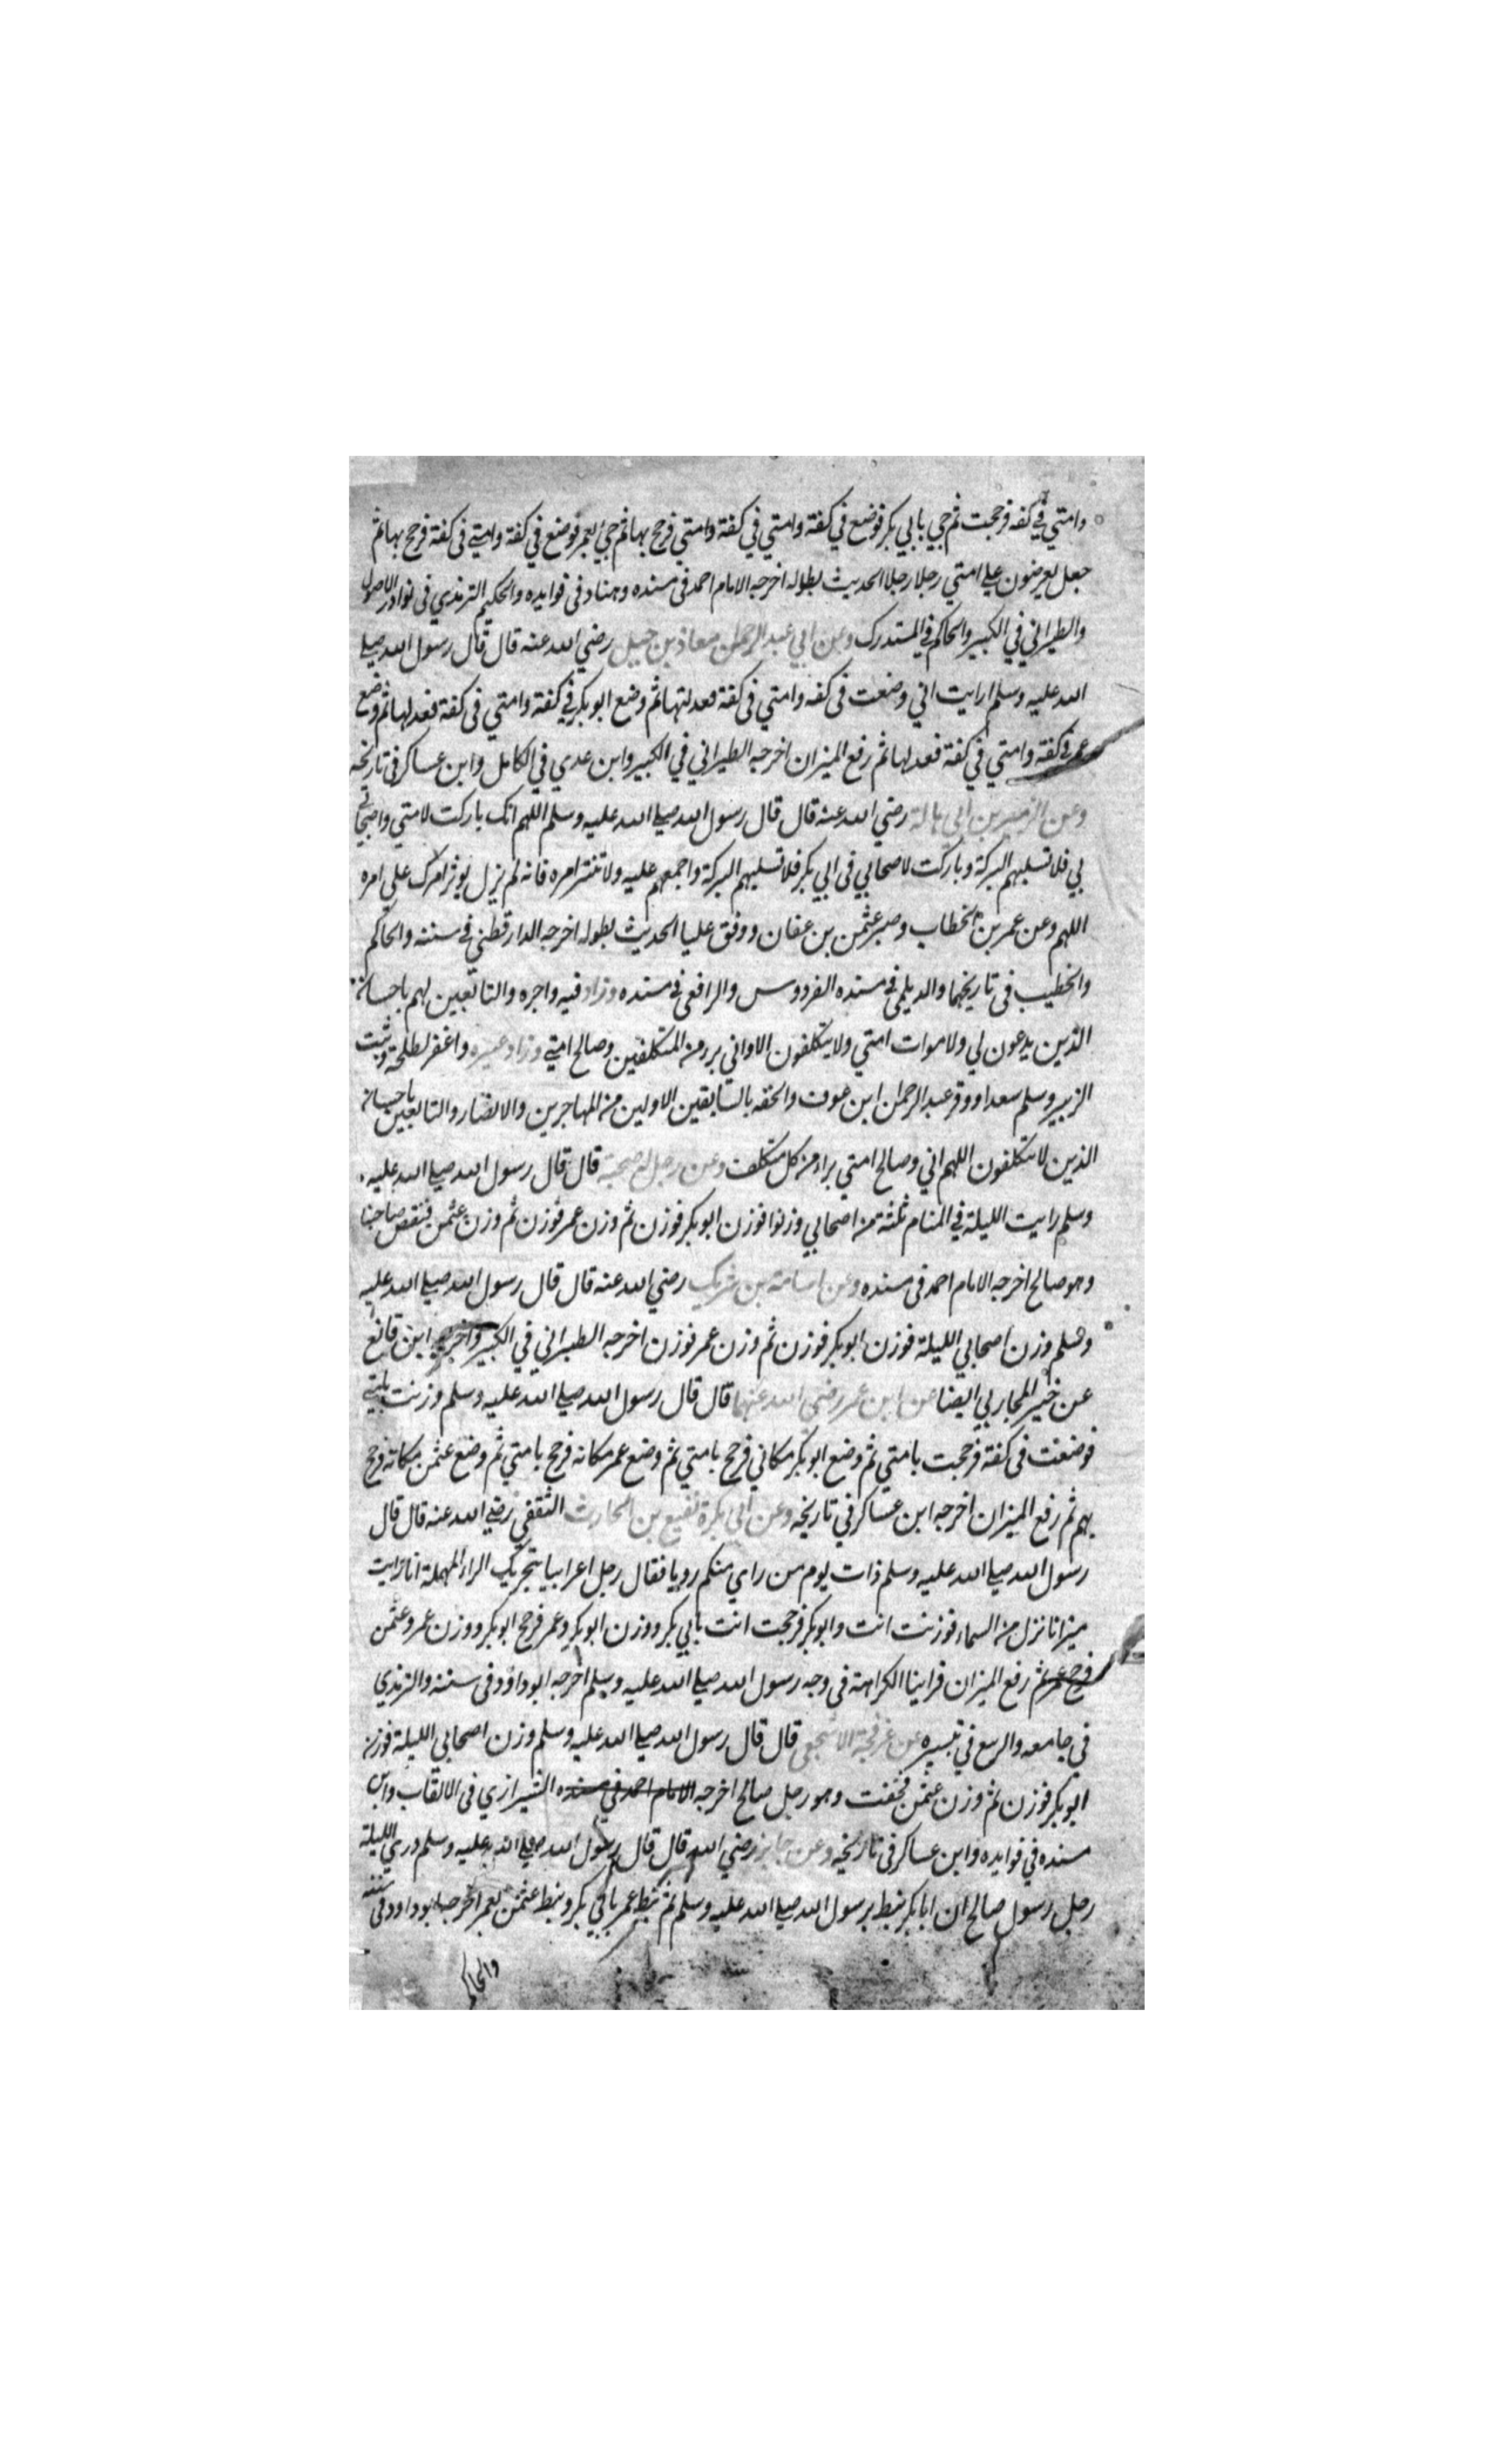 وامتي في كفه فرجحت ثم جي بابي بكر فوضع في كفة وامتي في كفة وامتي فرجح بها ثم جيئ بعمر فوضع في كفة وامتي في كفة فرجح بها ثم
جعل يعرضون علي امتي رجلا رجلا الحديث بطوله اخرجه الامام احمد في مسنده وهناد في فوايده والحكيم الترمذي في نوادر الاصول
والطبراني في الكبير والحاكم في المستدرك وعن ابي عبد الرحمن معاذ بن جبل رضي الله عنه قال قال رسول الله صلي
الله عليه وسلم ارايت اني وضعت في كفه وامتي في كفة فعدلتها ثم وضع ابو بكر في كفة وامتي في كفة فعدلها ثم وضع
عمر في كفة وامتي في كفة فعدلها ثم رفع الميزان اخرجه الطبراني في الكبير وابن عدي في الكامل وابن عساكر في تاريخه
وعن الزبير بن ابي هالة رضي الله عنه قال قال رسول الله صلي الله عليه وسلم اللهم انك باركت لامتي واصحا
بي فلا تسلبهم البركة وباركت لاصحابي في ابي بكر فلا تسلبهم البركة واجمعهم عليه ولا تنشر امره فانه لم يزل يوثر امرك علي امره
اللهم وعن عمر بن الخطاب وصبر عثمن بن عفان ووفق عليا الحديث بطوله اخرجه الدارقطني في سننه والحاكم
والخطيب في تاريخهما والديلمي في مسنده الفردوس والرافعي في مسنده وزاد فيه واجره والتابعين لهم باحسان
الذين يدعون لي ولاموات امتي ولا يتكلفون الا واني بر من المتكلفين وصالح امتي وزاد غيره واغفر لطلحة وثبت
الزبير وسلم سعدا ووقر عبد الرحمان ابن عوف والحقه بالسابقين الاولين من المهاجرين والانصار والتابعين باحسان
الذين لا يتكلفون اللهم اني وصالح امتي براء من كل متكلف وعن رجل له صحبة قال قال رسول الله صلي الله عليه
وسلم رايت الليلة في المنام ثلثة من اصحابي وزنوا فوزن ابو بكر فوزن ثم وزن عمر فوزن ثم وزن عثمن فنقص صاحبنا
وهو صالح اخرجه الامام احمد في مسنده وعن اسامة بن شريك رضي الله عنه قال قال رسول الله صلي الله عليه
وسلم وزن اصحابي الليلة فوزن ابو بكر فوزن ثم وزن عمر فوزن اخرجه الطبراني في الكبير واخرجه ابن قانع
عن المحاربي ايضا عن ابن عمر رضي الله عنهما قال قال رسول الله صلي الله عليه وسلم وزنت بامتي
فوضعت في كفة فرجحت بامتي ثم وضع ابو بكر مكاني فرجح بامتي ثم وضع عمر مكانه فرجح بامتي ثم وضع عثمن مكانه فرجح
بهم ثم رفع الميزان اخرجه ابن عساكر في تاريخه وعن ابي بكرة نفيع بن الحارث الثقفي رضي الله عنه قال قال
رسول الله صلي الله عليه وسلم ذات يوم من راي منكم رويا فقال رجل اعرابيا بتحريك الراء المهملة انا رايت
ميزانا نزل من السماء فوزنت انت وابو بكر فرجحت انت بابي بكر ووزن ابو بكر وعمر فرجح ابو بكر ووزن عمر وعثمن
فرجح عمر ثم رفع الميزان فراينا الكراهة في وجه رسول الله صلي الله عليه وسلم اخرجه ابو داوود في سننه والترمذي
في جامعه عن عرفجة الاشجعي قال قال رسول الله صلي الله عليه وسلم وزن اصحابي الليلة فوزن
ابو بكر فوزن ثم وزن عثمن فخفت وهو رجل صالح اخرجه الامام احمد في مسنده الشيرازي في الالقاب وابن
مسنده في فوايده وابن عساكر في تاريخه وعن جابر رضي الله قال قال رسول الله صلي الله عليه وسلم الليلة
رجل رسول صالح ان ابا بكر نبط برسول الله صلي الله عليه وسلم ثم نبط عمر بابي بكر ونبط عثمن بعمر اخرجه ابو داود في سننه
والحاكم